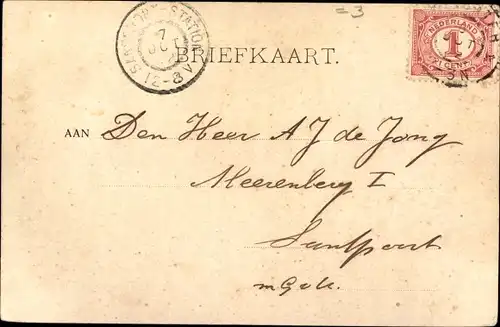 =3
STATION
7
12-8V
BRIEFKAART.
NEDERLAND
1
CENT
AAN Den Heer A J de Jong
Meerenberg I
Santpoort